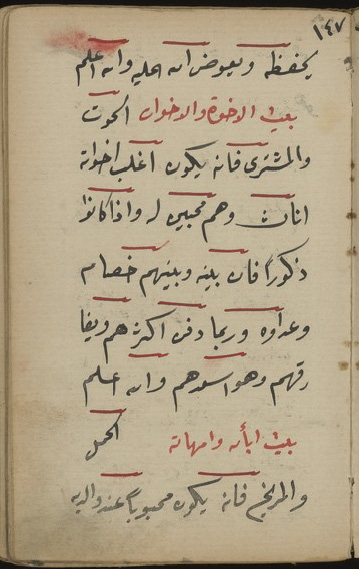 ١٤٧
يحفظه ويعوض الله عليه والله اعلم
بيت الاخوة والاخوان الحوت
والمشترى فانه يكون اغلب اخواته
اناث وهم محبين له واذا كانوا
ذكوراً فان بينه وبينهم خصام
وعداوه وربما دفن اكثرهم ويفا
رقهم وهو اسعدهم والله اعلم
بيت ابائه وامهاته الحمل
والمريخ فانه يكون محبوباً عند والديه